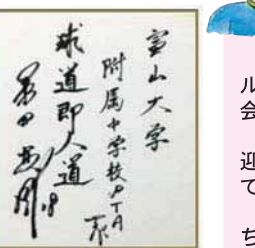 富山大学
附属中学校PTA
球道即人道
18
ル
会
迎
て
ち